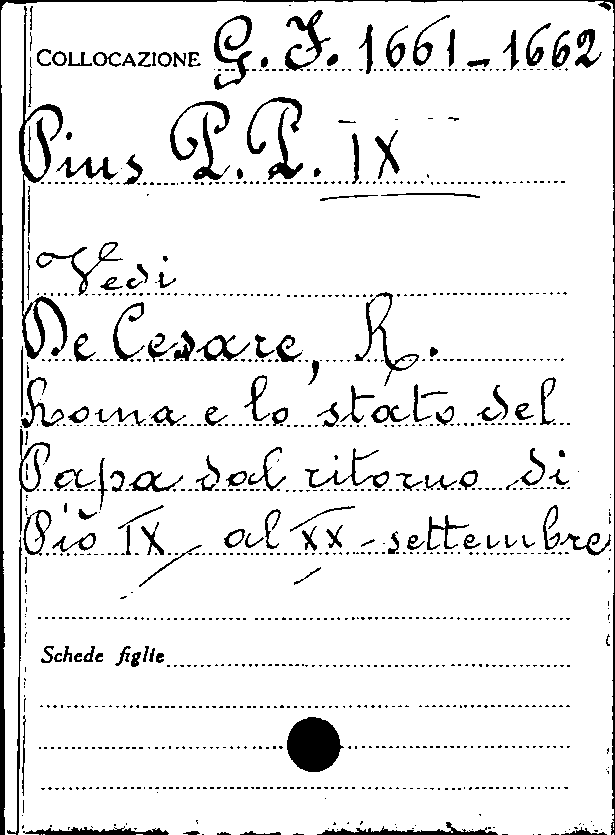 COLLOCAZIONE G. J. 1661-1662
Pius P.P. IX
Vedi
De Cesare, R.
Roma e lo stato del
Papa dal ritorno di
Pio IX al XX-settembre
Schede figlie